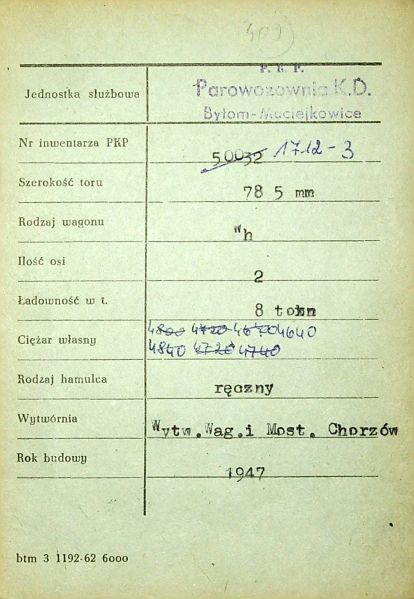 409
P. K. P.
Jednostka służbowa Parowozownia K.D.
Bytom-Maciejkowice
Nr inwentarza PKP 50032 1712-3
Szerokość toru 78 5 mm
Rodzaj wagonu Wh
Ilość osi 2
Ładowność w t. 8 tonn
4800 4720 4620 4640
Ciężar własny
4840 4720 4740
Rodzaj hamulca ręczny
Wytwórnia Wytw.Wag.i Most. Chorzów
Rok budowy 1947
btm 3 1192-62 6000